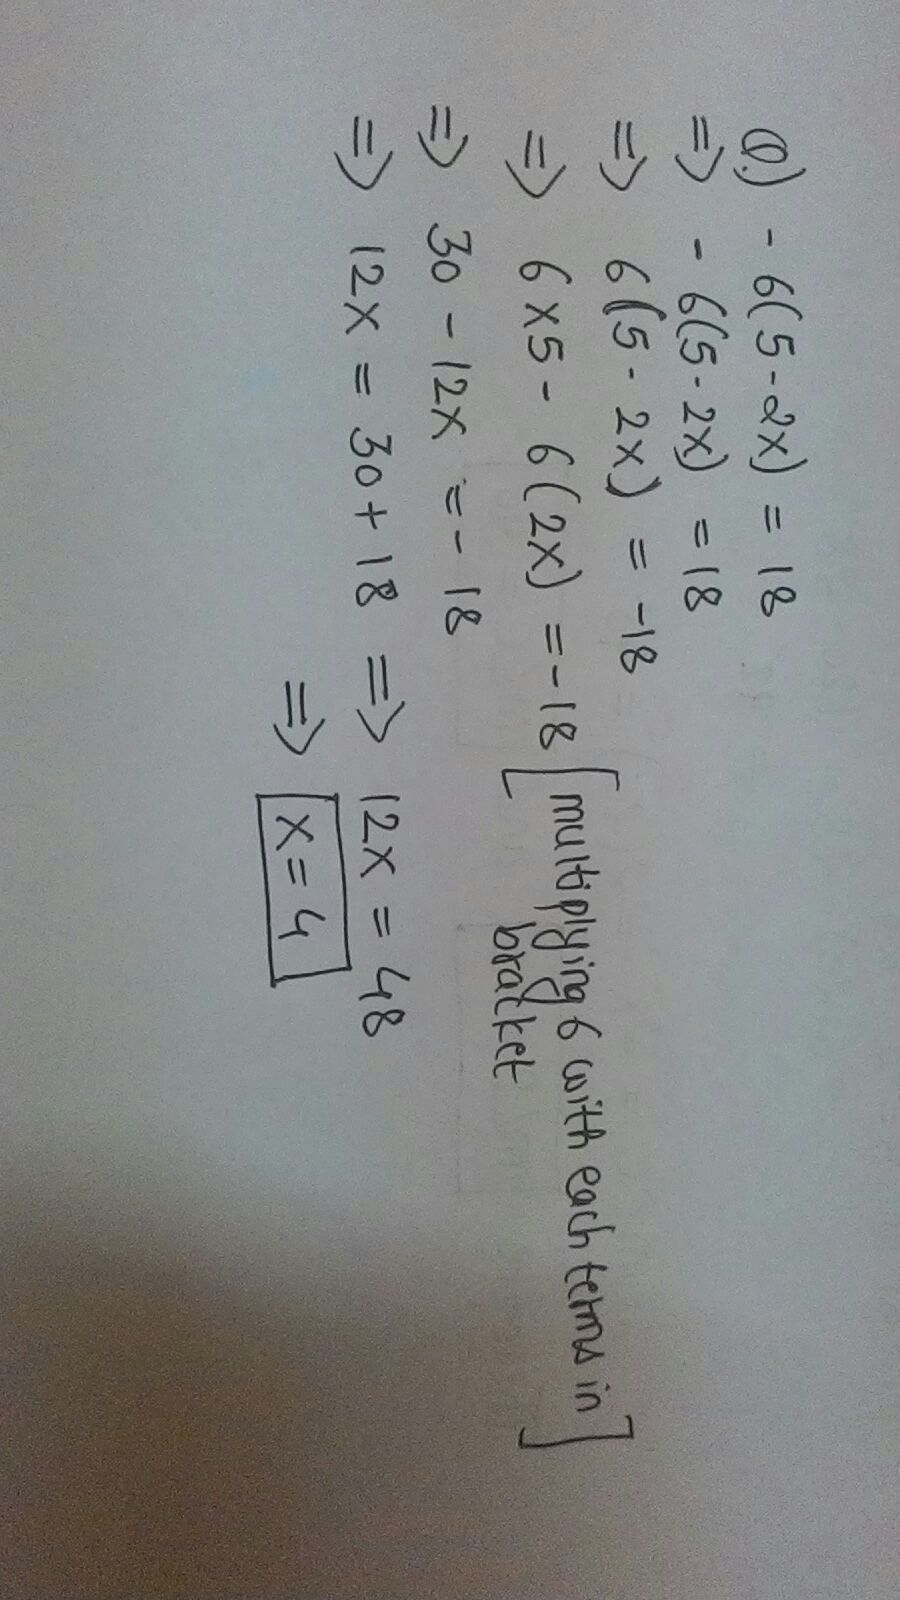 Q.) - 6(5-2x) = 18
⇒ - 6(5-2x) = 18
⇒ 6(5-2x) = -18
⇒ 6x5 - 6(2x) = -18 [multiplying 6 with each terms in
bracket]
⇒ 30 - 12x = - 18
⇒ 12x = 30 + 18 ⇒ 12x = 48
⇒ x = 4